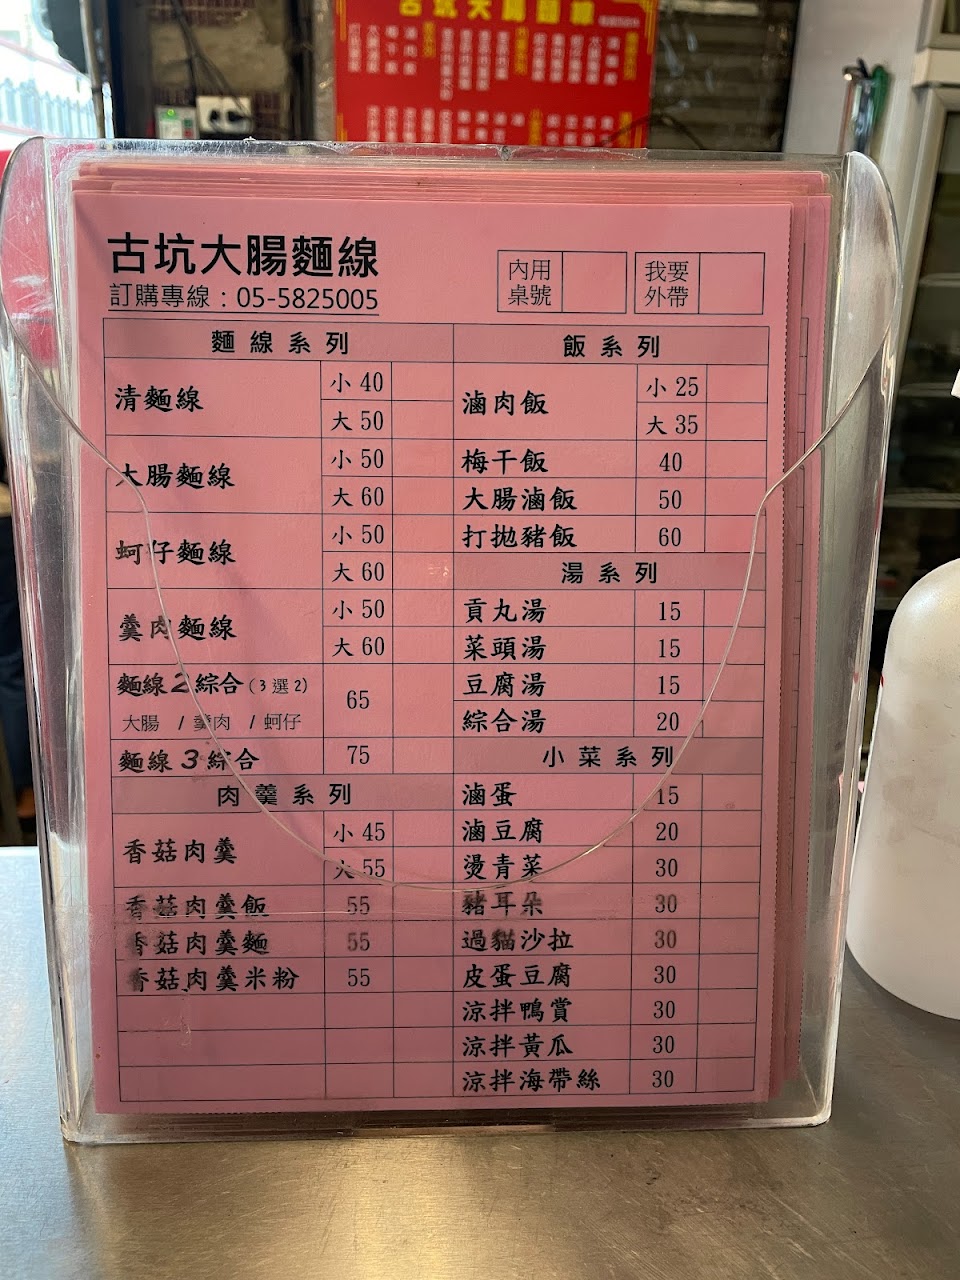 古坑大腸麵線
古坑大腸麵線
訂購專線：05-5825005
內用
桌號
我要
外帶
麵線系列
清麵線 小 40
大 50
大腸麵線 小 50
大 60
蚵仔麵線 小 50
大 60
羹肉麵線 小 50
大 60
麵線2綜合(3選2) 65
大腸 / 羹肉 / 蚵仔
麵線3綜合 75
肉羹系列
香菇肉羹 小 45
大 55
香菇肉羹飯 55
香菇肉羹麵 55
香菇肉羹米粉 55
飯系列
滷肉飯 小 25
大 35
梅干飯 40
大腸滷飯 50
打拋豬飯 60
湯系列
貢丸湯 15
菜頭湯 15
豆腐湯 15
綜合湯 20
小菜系列
滷蛋 15
滷豆腐 20
燙青菜 30
豬耳朵 30
過貓沙拉 30
皮蛋豆腐 30
涼拌鴨賞 30
涼拌黃瓜 30
涼拌海帶絲 30